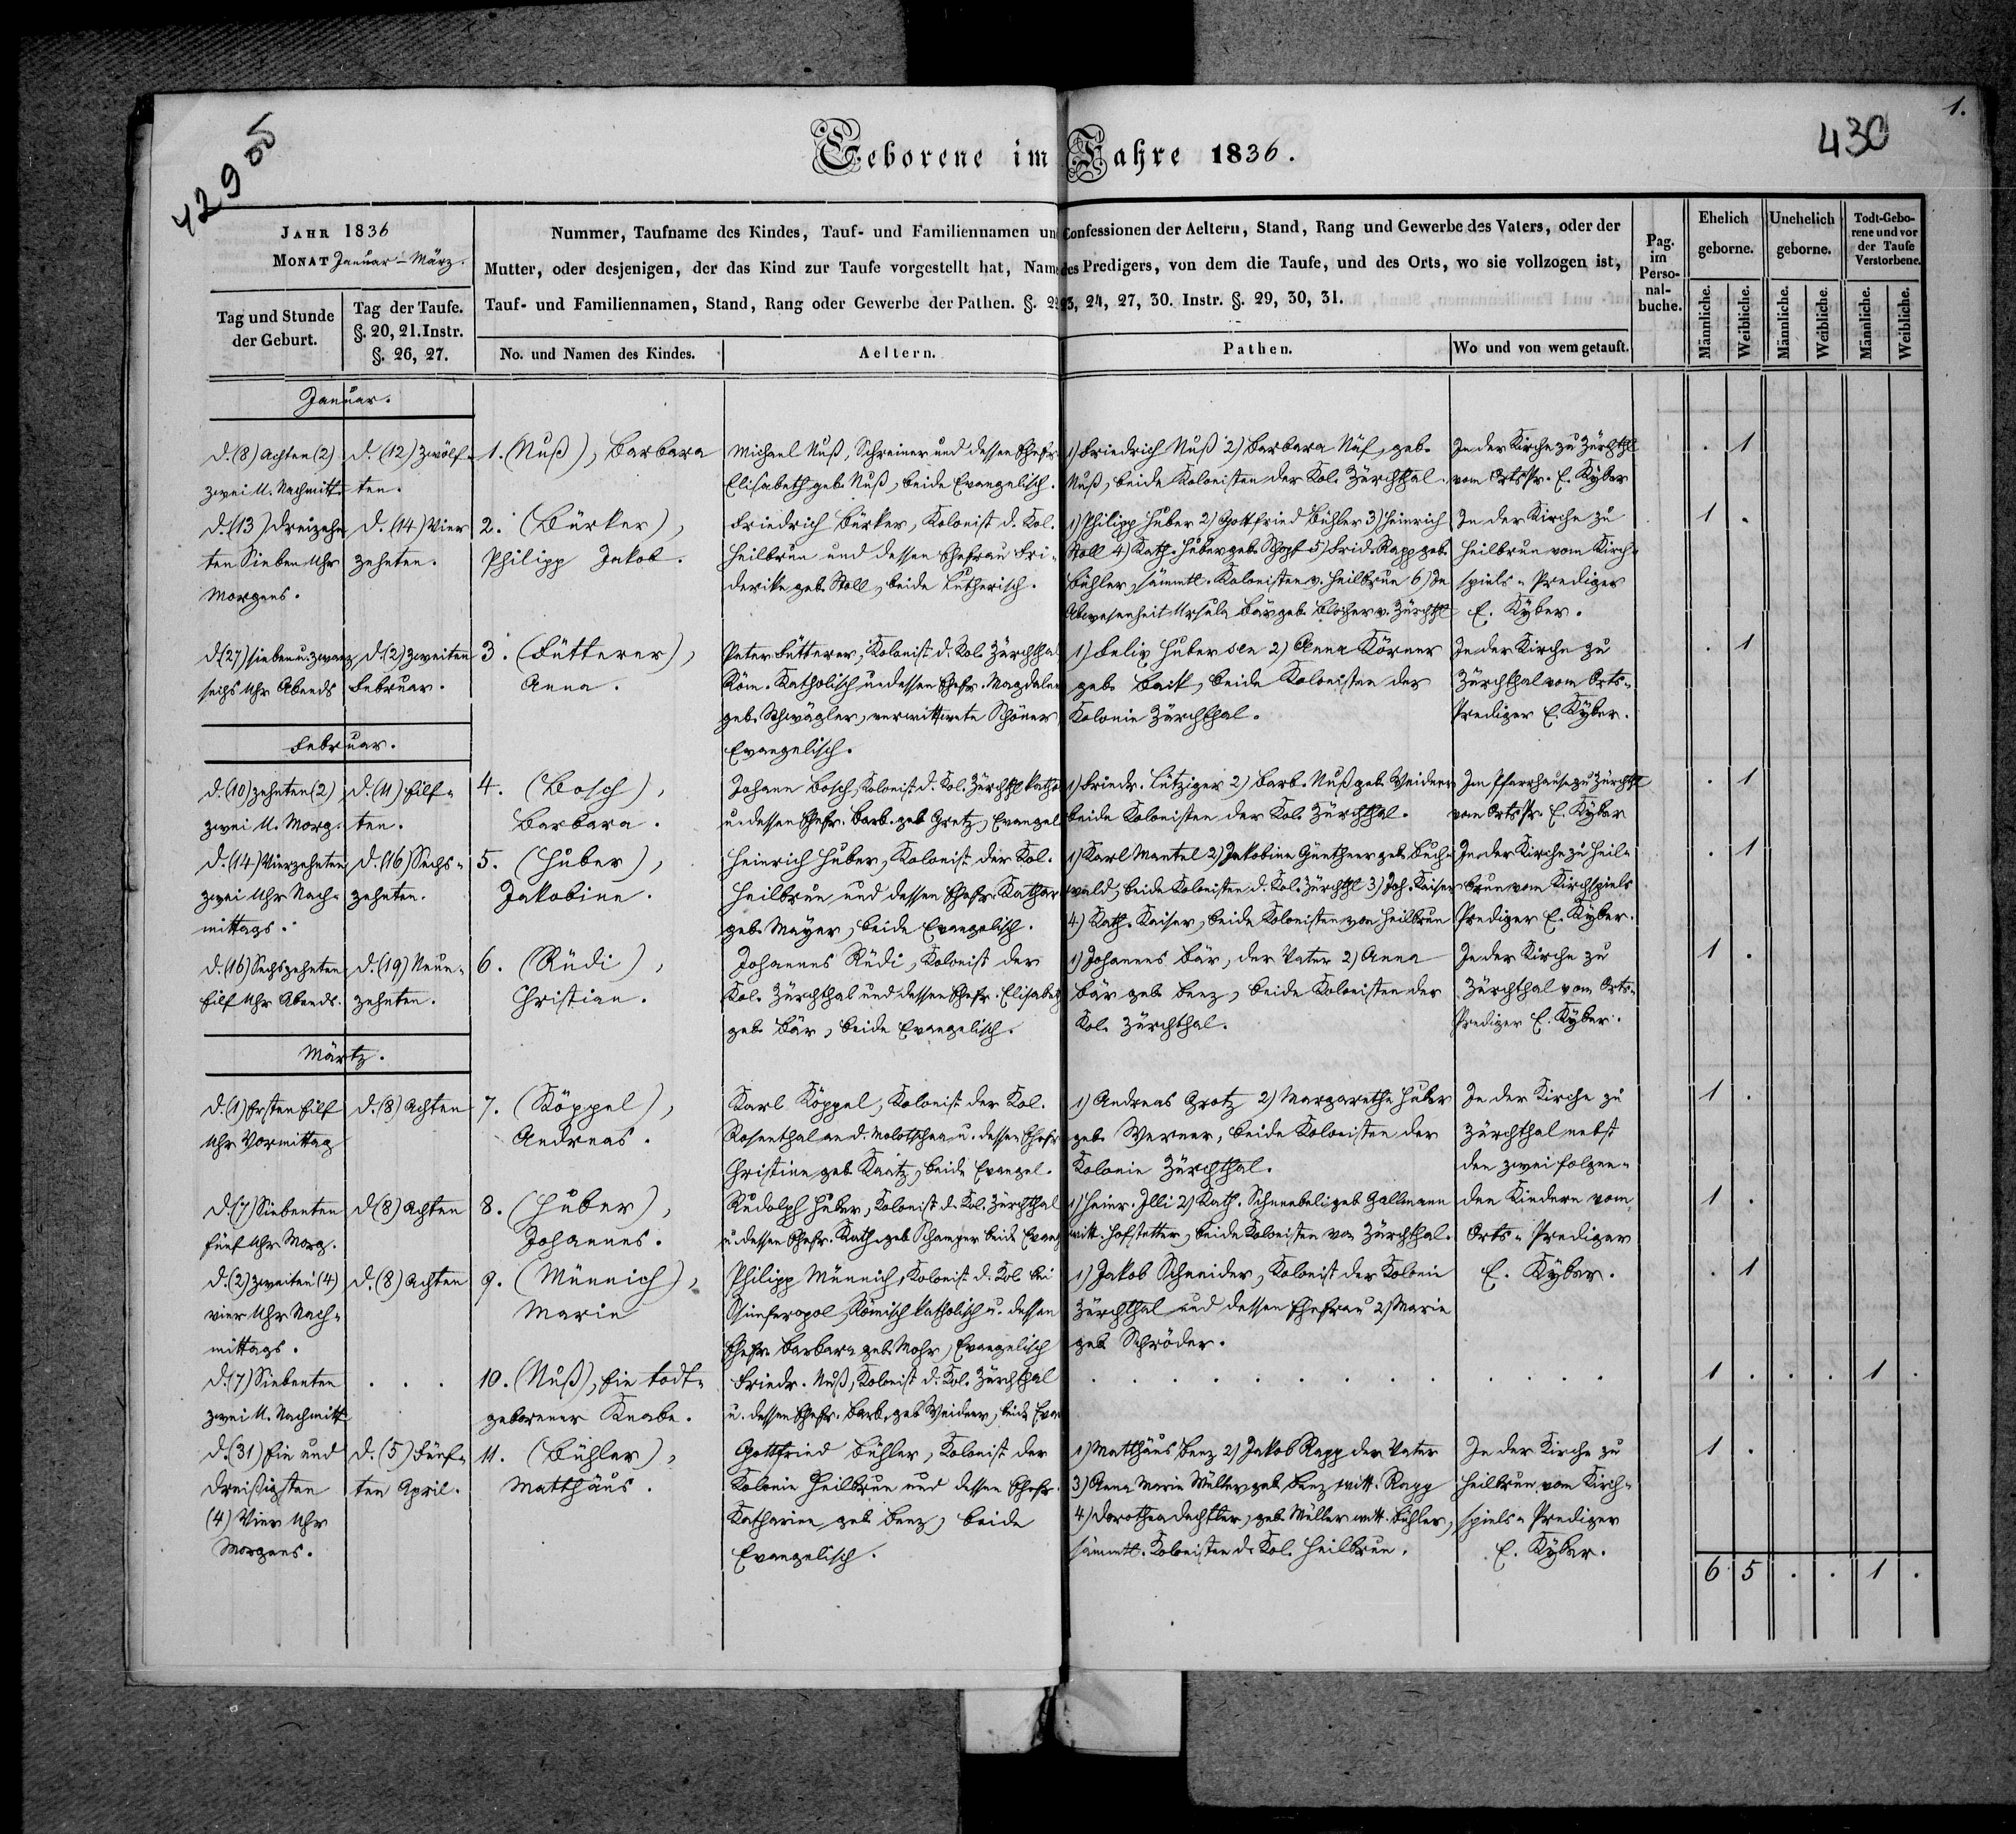 1.
429 об
430
Geborene im Jahre 1836.
JAHR 1836
MONAT Januar - März.
Tag und Stunde der Geburt.
Tag der Taufe. §. 20, 21. Instr. §. 26, 27.
Nummer, Taufname des Kindes, Tauf- und Familiennamen un Confessionen der Aeltern, Stand, Rang und Gewerbe des Vaters, oder der
Mutter, oder desjenigen, der das Kind zur Taufe vorgestellt hat, Name des Predigers, von dem die Taufe, und des Orts, wo sie vollzogen ist,
Tauf- und Familiennamen, Stand, Rang oder Gewerbe der Pathen. §. 23, 24, 27, 30. Instr. §. 29, 30, 31.
No. und Namen des Kindes.
Aeltern.
Pathen.
Wo und von wem getauft.
Pag. im Perso-nal-buche.
Ehelich geborne.
Unehelich geborne.
Todt-Gebo-rene und vor der Taufe Verstorbene.
Männliche. Weibliche. Männliche. Weibliche. Männliche. Weibliche.
Januar.
d. (8) Achten (2) zwei U. Nachmitt.
d. (12) Zwölf-ten.
1. (Nuß), Barbara
Michael Nuß, Schreiner und dessen Ehefr.
Elisabeth geb. Nuß, beide Evangelisch.
1) Friedrich Nuß 2) Barbara Näf, geb.
Nuß, beide Kolonisten der Kol. Zürchthal.
In der Kirche zu Zürchthl
vom Orts Pr. E. Kyber
. 1
d. (13) dreizehn
ten Sieben Uhr
Morgens.
d. (14) Vier
zehnten.
2. (Bürker),
Philipp Jakob.
Friedrich Bürker, Kolonist d. Kol.
Heilbrun und dessen Ehefrau Fri-
derike geb. Stoll, beide Lutherisch.
1) Philipp Huber 2) Gottfried Bühler 3) Heinrich
Stoll 4) Kath. Huber geb. Schopf 5) Frid. Rapp geb.
Bühler, sämmtl. Kolonisten v. Heilbrun 6) In
Abwesenheit Ursula Bär geb. Blocher v. Zürchthl
In der Kirche zu
Heilbrun vom Kirch-
spiels-Prediger
E. Kyber.
1 .
d. (27) sieben u. zwanz.
sechs Uhr Abends
d. (2) zweiten
Februar.
3. (Fütterer),
Anna.
Peter Fütterer, Kolonist d. Kol. Zürchthal
Röm. Katholisch u. dessen Ehefr. Magdalen
geb. Schwägler, verwittwete Schöner
Evangelisch.
1) Felix Huber sen 2) Anna Körner
geb. Baik, beide Kolonisten der
Kolonie Zürchthal.
In der Kirche zu
Zürchthal vom Orts-
Prediger E. Kyber.
. 1
Februar.
d. (10) zehnten (2)
zwei U. Morg.
d. (11) Eilf-
ten.
4. (Bosch),
Barbara.
Johann Bosch, Kolonist d. Kol. Zürchthl kathol
u. dessen Ehefr. Barb. geb Gretz, Evangel
1) Friedr. Lütziger 2) Barb. Nuß geb. Weidner
beide Kolonisten der Kol. Zürchthal.
Im Pfarrhause zu Zürchthl
vom Orts Pr. E. Kyber
. 1
d. (14) Vierzehnten
zwei Uhr Nach-
mittags.
d. (16) Sechs-
zehnten.
5. (Huber),
Jakobine.
Heinrich Huber, Kolonist der Kol.
Heilbrun und dessen Ehefr. Kathar
geb. Mayer, beide Evangelisch.
1) Karl Mantel 2) Jakobine Günthner geb. Buch-
wald, beide Kolonisten d. Kol. Zürchthl 3) Joh. Kaiser
4) Kath. Kaiser, beide Kolonisten von Heilbrun
In der Kirche zu Heil-
brun vom Kirchspiels
Prediger E. Kyber.
. 1
d. (16) Sechszehnten
Eilf Uhr Abends.
d. (19) Neun-
zehnten.
6. (Rüdi),
Christian.
Johannes Rüdi, Kolonist der
Kol. Zürchthal und dessen Ehefr. Elisabeth
geb. Bär, beide Evangelisch.
1) Johannes Bär, der Vater 2) Anna
Bär geb. Benz, beide Kolonisten der
Kol. Zürchthal.
In der Kirche zu
Zürchthal vom Orts-
Prediger E. Kyber.
1 .
Märtz.
d. (1) Ersten Eilf
Uhr Vormittag
d. (8) Achten
7. (Köppel),
Andreas.
Karl Köppel, Kolonist der Kol.
Rosenthal an d. Molotschna u. dessen Ehefr
Christine geb. Kaatz, beide Evangel.
1) Andreas Grotz 2) Margarethe Huber
geb. Werner, beide Kolonisten der
Kolonie Zürchthal.
In der Kirche zu
Zürchthal nebst
den zwei folgen-
1 .
d. (7) Siebenten
fünf Uhr Morg.
d. (8) Achten
8. (Huber),
Johannes.
Rudolph Huber, Kolonist d. Kol. Zürchthal
u. dessen Ehefr. Kath. geb Schamper beide Evang
1) Heinr. Illi 2) Kath. Schneebeli geb Gallmann
witt. Hofstetter, beide Kolonisten von Zürchthal.
den Kindern vom
Orts-Prediger
1 .
d. (2) zweiten (4)
vier Uhr Nach-
mittags.
d. (8) Achten
9. (Münnich),
Marie
Philipp Münnich, Kolonist d. Kol bei
Simferopol, Römisch katholisch u. dessen
Ehefr. Barbara geb. Mohr, Evangelisch
1) Jakob Schneider, Kolonist der Kolonie
Zürchthal und dessen Ehefrau 2) Marie
geb Schröder.
E. Kyber.
. 1
d. (7) Siebenten
zwei U. Nachmitt.
. . .
10. (Nuß), Ein todt-
geborener Knabe.
Friedr. Nuß, Kolonist d. Kol. Zürchthal
u. dessen Ehefr. Barb. geb Weidner, beide Evan
1 . . . 1 .
d. (31) Ein und
dreißigsten
(4) Vier Uhr
Morgens.
d. (5) Fünf-
ten April.
11. (Bühler),
Matthäus.
Gottfried Bühler, Kolonist der
Kolonie Heilbrun und dessen Ehefr.
Katharine geb. Benz, beide
Evangelisch.
1) Matthäus Benz 2) Jakob Rapp der Vater
3) Anna Marie Müller geb. Benz witt. Rapp
4) Dorothea Dachtler, geb. Müller witt. Bühler,
sämmtl. Kolonisten d. Kol. Heilbrun.
In der Kirche zu
Heilbrun vom Kirch-
spiels-Prediger
E. Kyber.
1 .
6 5 . . 1 .